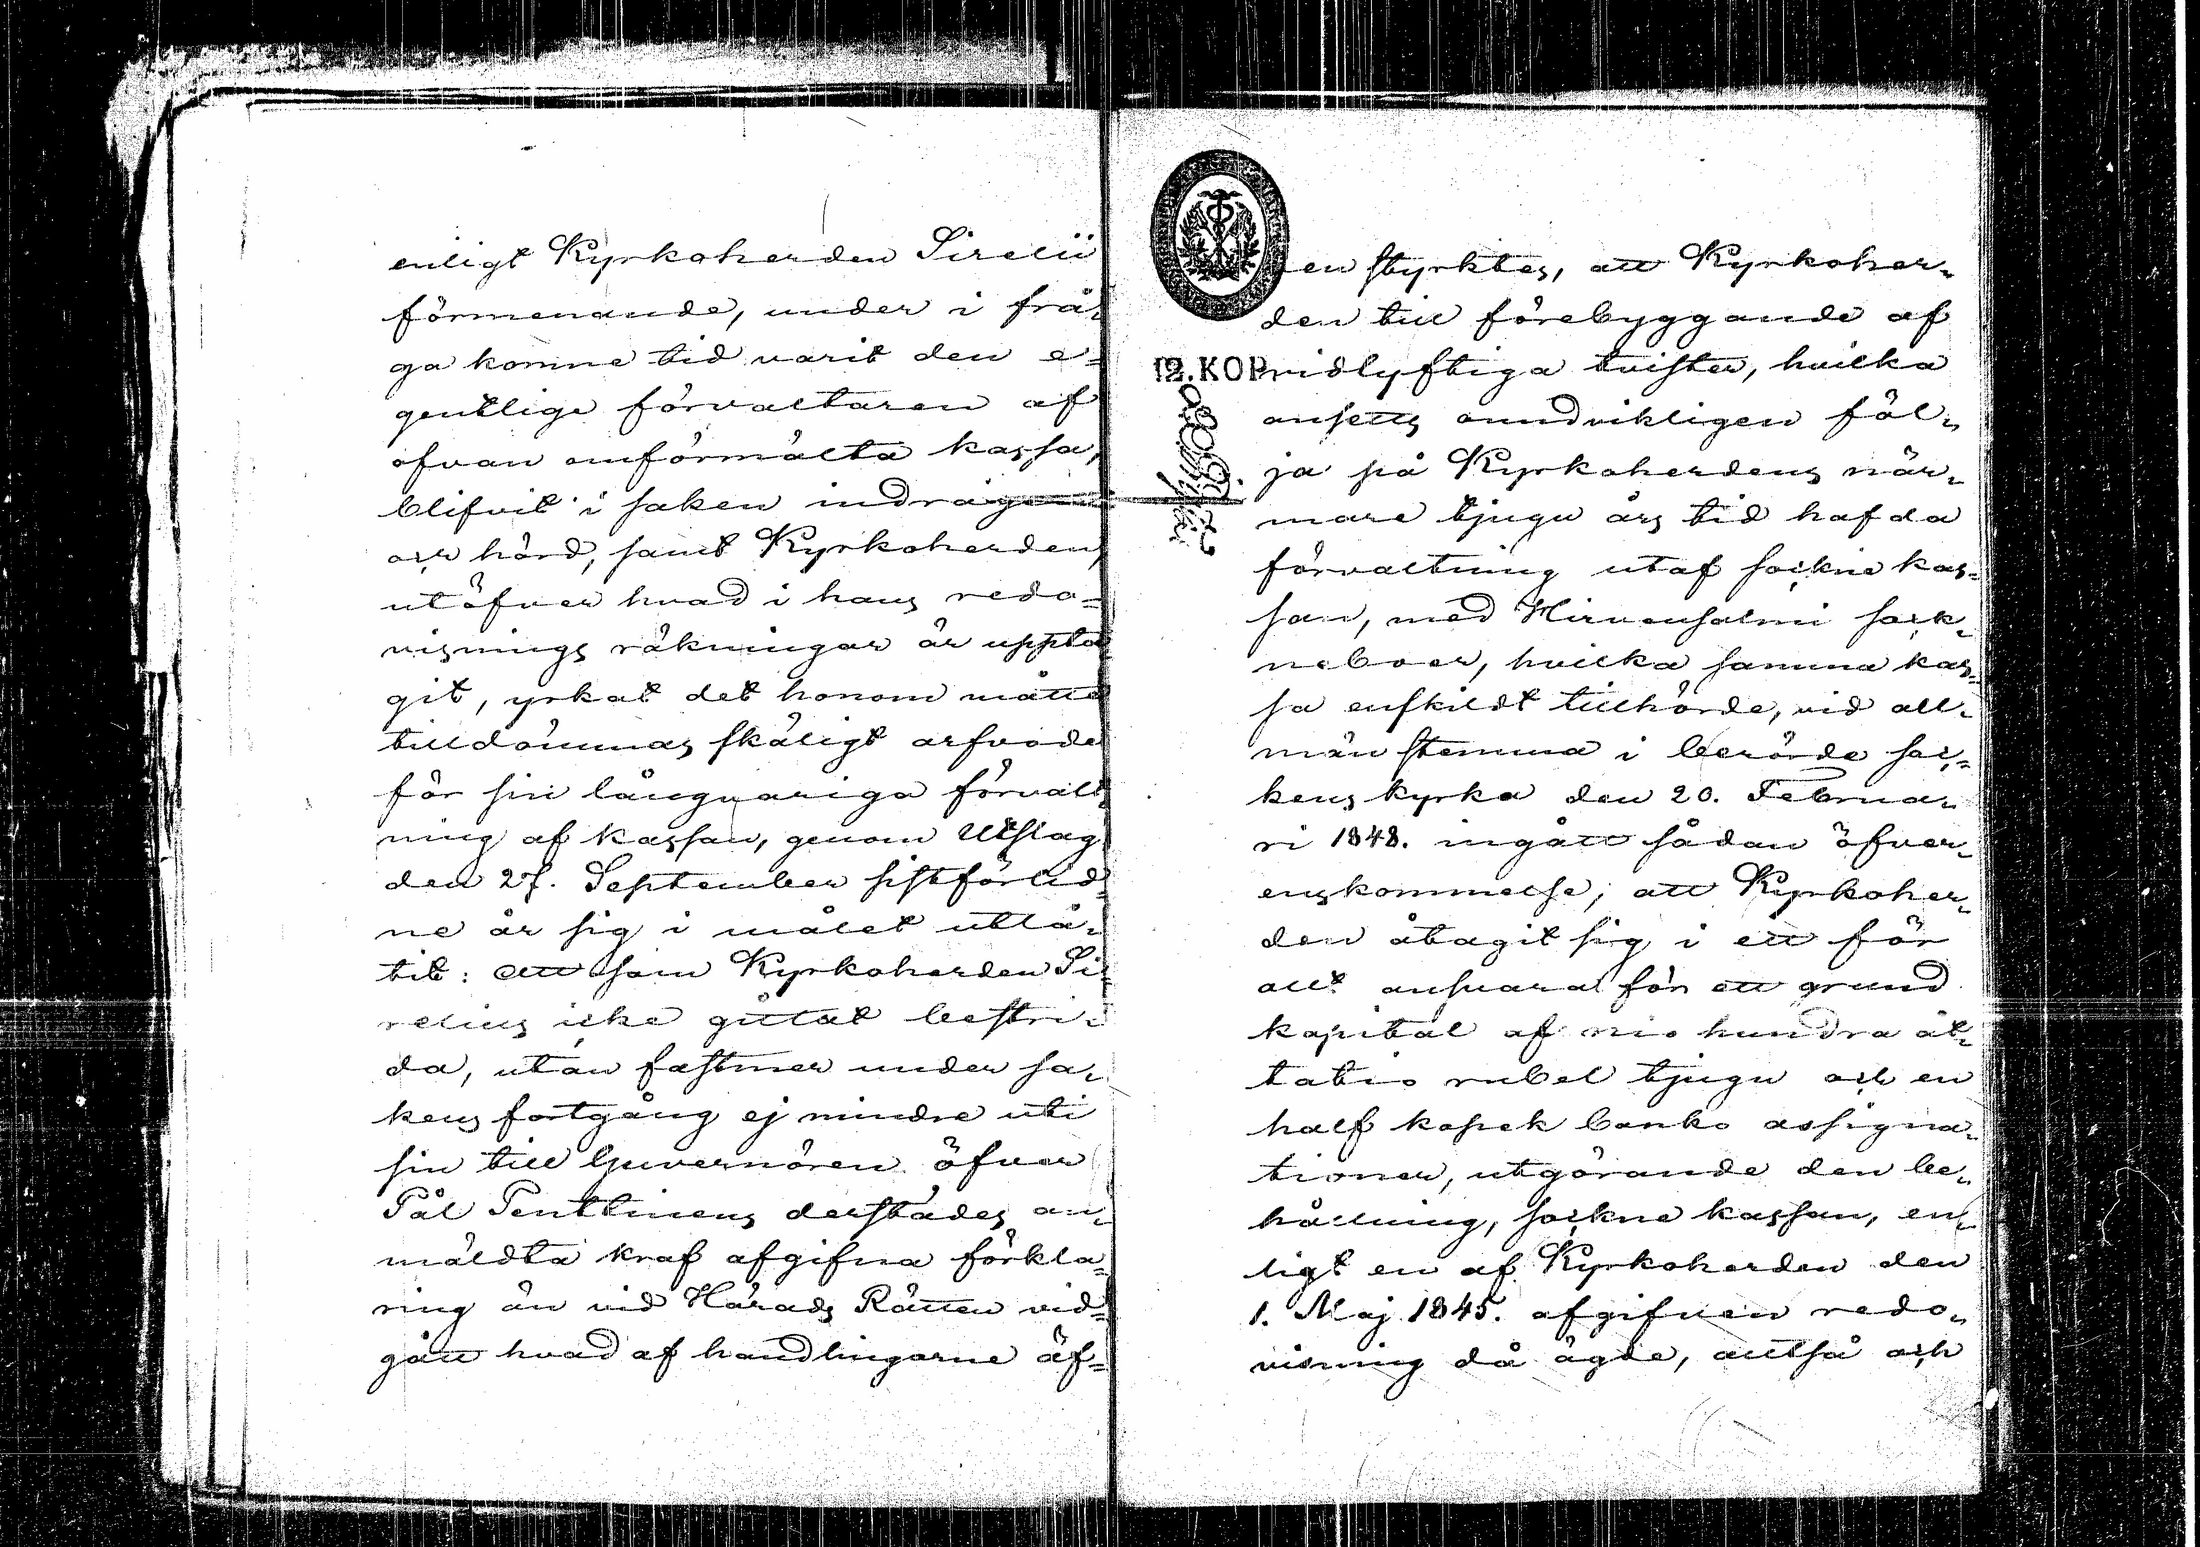 enligt Kyrkoherden Sirelii
förmenande, under i frå-
ga komne tid varit den e-
gentlige förvaltaren af
ofvan omförmälta kassa,
blifvit i saken indragen
och hörd, samt Kyrkoherden,
utöfver hvad i hans redo-
visnings räkningar är uppta
git, yrkat det honom måtte
tilldömmas skäligt arfvode
för sin långvariga förvalt-
ning af kassan, genom Utslag
den 27. September sistförlid-
ne år sig i målet utlå-
tit: Att som Kyrkoherden Si-
relius icke gittat bestri-
da, utan fastmer under sa-
kens fortgång ej mindre uti
sin till Guvernören öfver
Pål Penttinens derstädes an-
mäldta kraf afgifna förkla-
ring än vid Härads Rätten vid-
gått hvad af handlingarne äf-
en styrktes, att Kyrkoher-
den till förebyggande af
12. KOP. vidlyftiga tvister, hvilka
ansetts oundvikligen föl-
ja på Kyrkoherdens när-
mare tjugu års tid hafda
förvaltning utaf sockne kas-
san, med Hirvensalmi sock-
neboer, hvilka samma kas-
sa enskildt tillhörde, vid all-
män stemma i berörde soc-
kens kyrka den 20. Februa-
ri 1848. ingått sådan öfver-
enskommelse, att Kyrkoher-
den åtagit sig i ett för
allt ansvara för ett grund
kapital af nio hundra åt-
tatio rubel tjugu och en
half kopek banko assigna-
tioner, utgörande den be-
hållning, sockne kassan, en-
ligt en af Kyrkoherden den
1. Maj 1845. afgifven redo-
visning då ägde, alltså och